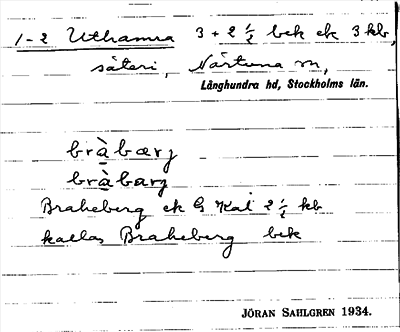 1-2 Uthamra 3 + 2 ½ bek ek 3 kb,
säteri, Närtuna sn,
Långhundra hd, Stockholms län.
bràbærj
bràbarj
Braheberg ek G Kat 2 ½ kb
kallas Braheberg bek
JÖRAN SAHLGREN 1934.